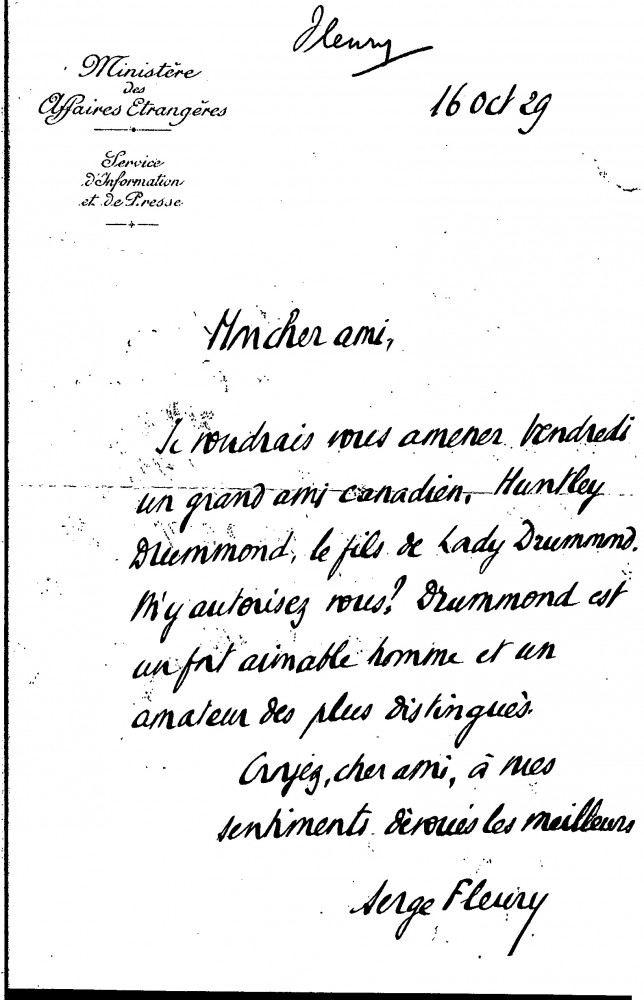 Fleury
Ministère
des
Affaires Etrangères
16 Oct 29
Service
d'Information
et de Presse
Mon cher ami,
Je voudrais vous amener Vendredi
un grand ami canadien, Huntley
Drummond, le fils de Lady Drummond.
M'y autorisez vous? Drummond est
un fort aimable homme et un
amateur des plus distingués.
Croyez, cher ami, à mes
sentiments dévoués les meilleurs
Serge Fleury